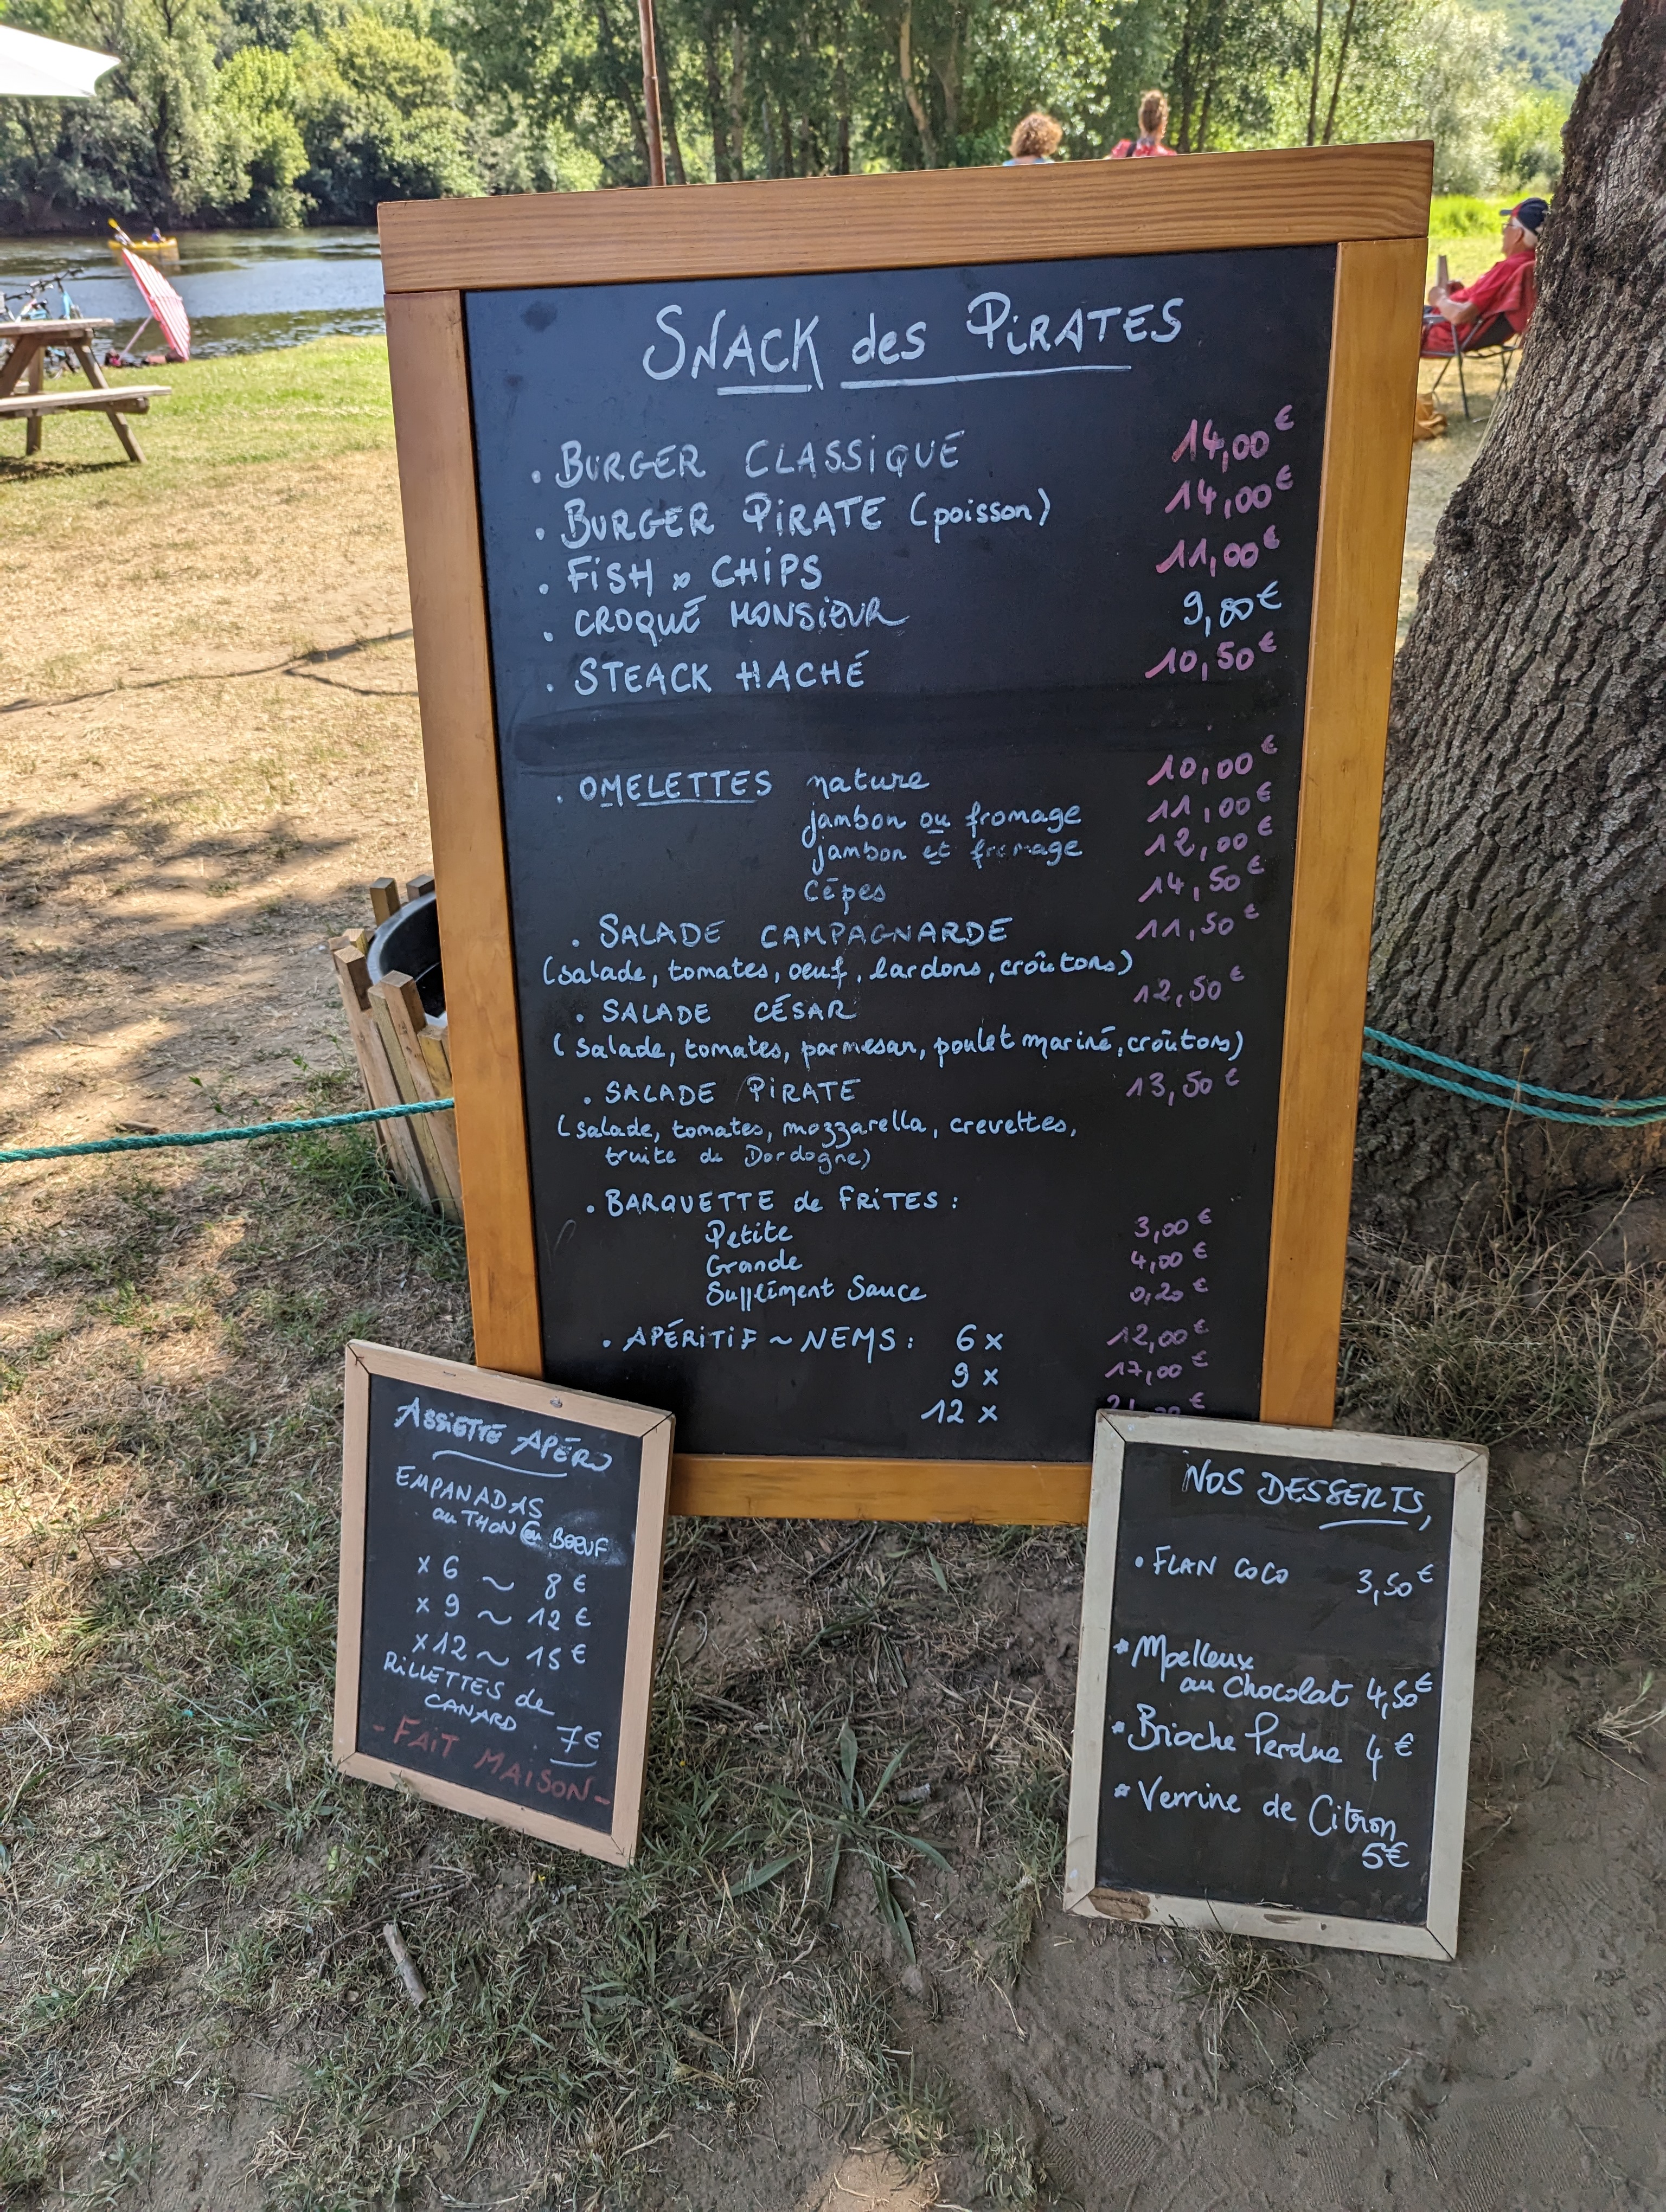 SNACK des PIRATES
. BURGER CLASSIQUE 14,00€
. BURGER PIRATE (poisson) 14,00€
. FISH & CHIPS 11,00€
. CROQUE MONSIEUR 9,80€
. STEACK HACHÉ 10,50€
. OMELETTES nature 10,00€
jambon ou fromage 11,00€
jambon et fromage 12,00€
Cêpes 14,50€
. SALADE CAMPAGNARDE 11,50€
(salade, tomates, oeuf, lardons, croûtons)
. SALADE CÉSAR 12,50€
(salade, tomates, parmesan, poulet mariné, croûtons)
. SALADE PIRATE 13,50€
(salade, tomates, mozzarella, crevettes,
truite de Dordogne)
. BARQUETTE de FRITES :
Petite 3,00€
Grande 4,00€
Supplément Sauce 0,20€
. APÉRITIF ~ NEMS : 6 x 12,00€
9 x 17,00€
12 x €
ASSIETTE APÉRO
EMPANADAS
au THON ou BOEUF
x 6 ~ 8€
x 9 ~ 12€
x 12 ~ 15€
RILLETTES de
CANARD 7€
- FAIT MAISON -
NOS DESSERTS
• FLAN COCO 3,50€
* Moelleux
au Chocolat 4,50€
* Brioche Perdue 4€
* Verrine de Citron
5€